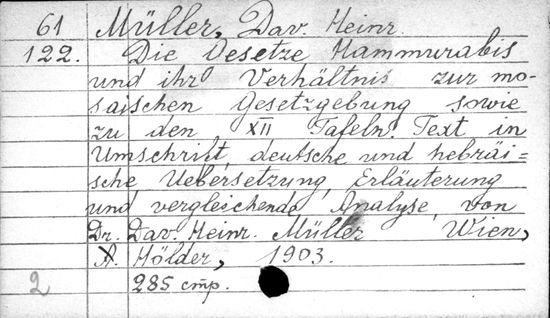 61 Müller, Dav. Heinr.
122. Die Gesetze Hammurabis
und ihr Verhältnis zur mo-
saischen Gesetzgebung sowie
zu den XII Tafeln. Text in
Umschrift, deutsche und hebräi=
sche Uebersetzung, Erläuterung
und vergleichende Analyse von
Dr. Dav. Heinr. Müller Wien,
A. Hölder, 1903.
2 285 стр.